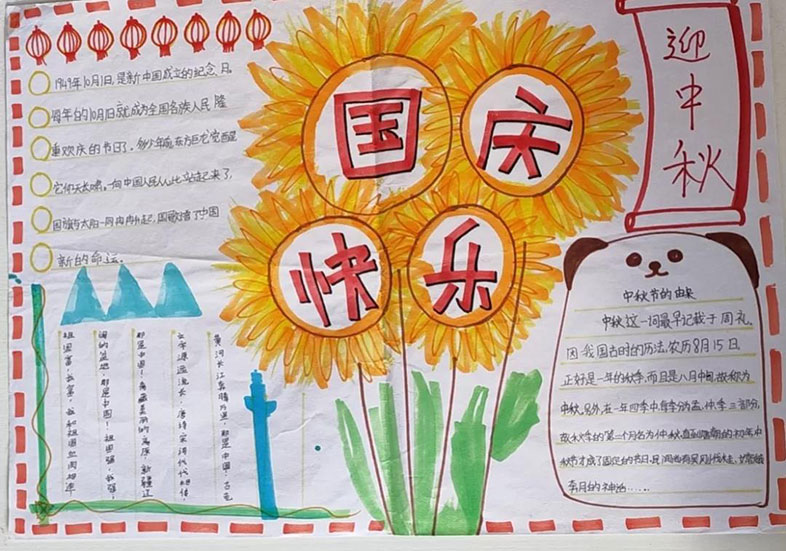 国庆
快乐
迎中秋
1949年10月1日,是新中国成立的纪念日。
每年的10月1日就成为全国各族人民隆
重欢庆的节日了。
中国人民从此站起来了,
国旗与太阳一同冉冉升起,国歌
新的命运。
黄河长江 那是中国!
文字源远流长,唐诗宋词代代相传
那是中国! 美丽的高原,新疆
的盆地,那是中国!祖国强,我强!
祖国富,我富。我和祖国血肉相连
中秋节的由来
中秋这一词最早记载于周礼。
因我国古时的历法,农历8月15日
正好是一年的秋季,而且是八月中旬,故称为
中秋。另外,在一年四季中,每季分为孟,仲,季三部分,
故秋季的第二个月名为仲秋,直到唐朝的初年,中
秋节才成了固定的节日。民间
奔月的神话……